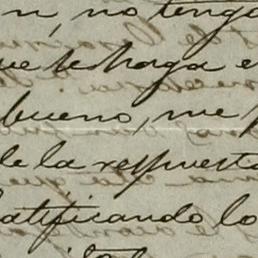 n, no tengo
ue te haga e
bueno, me p
de la respuesta
ratificando lo